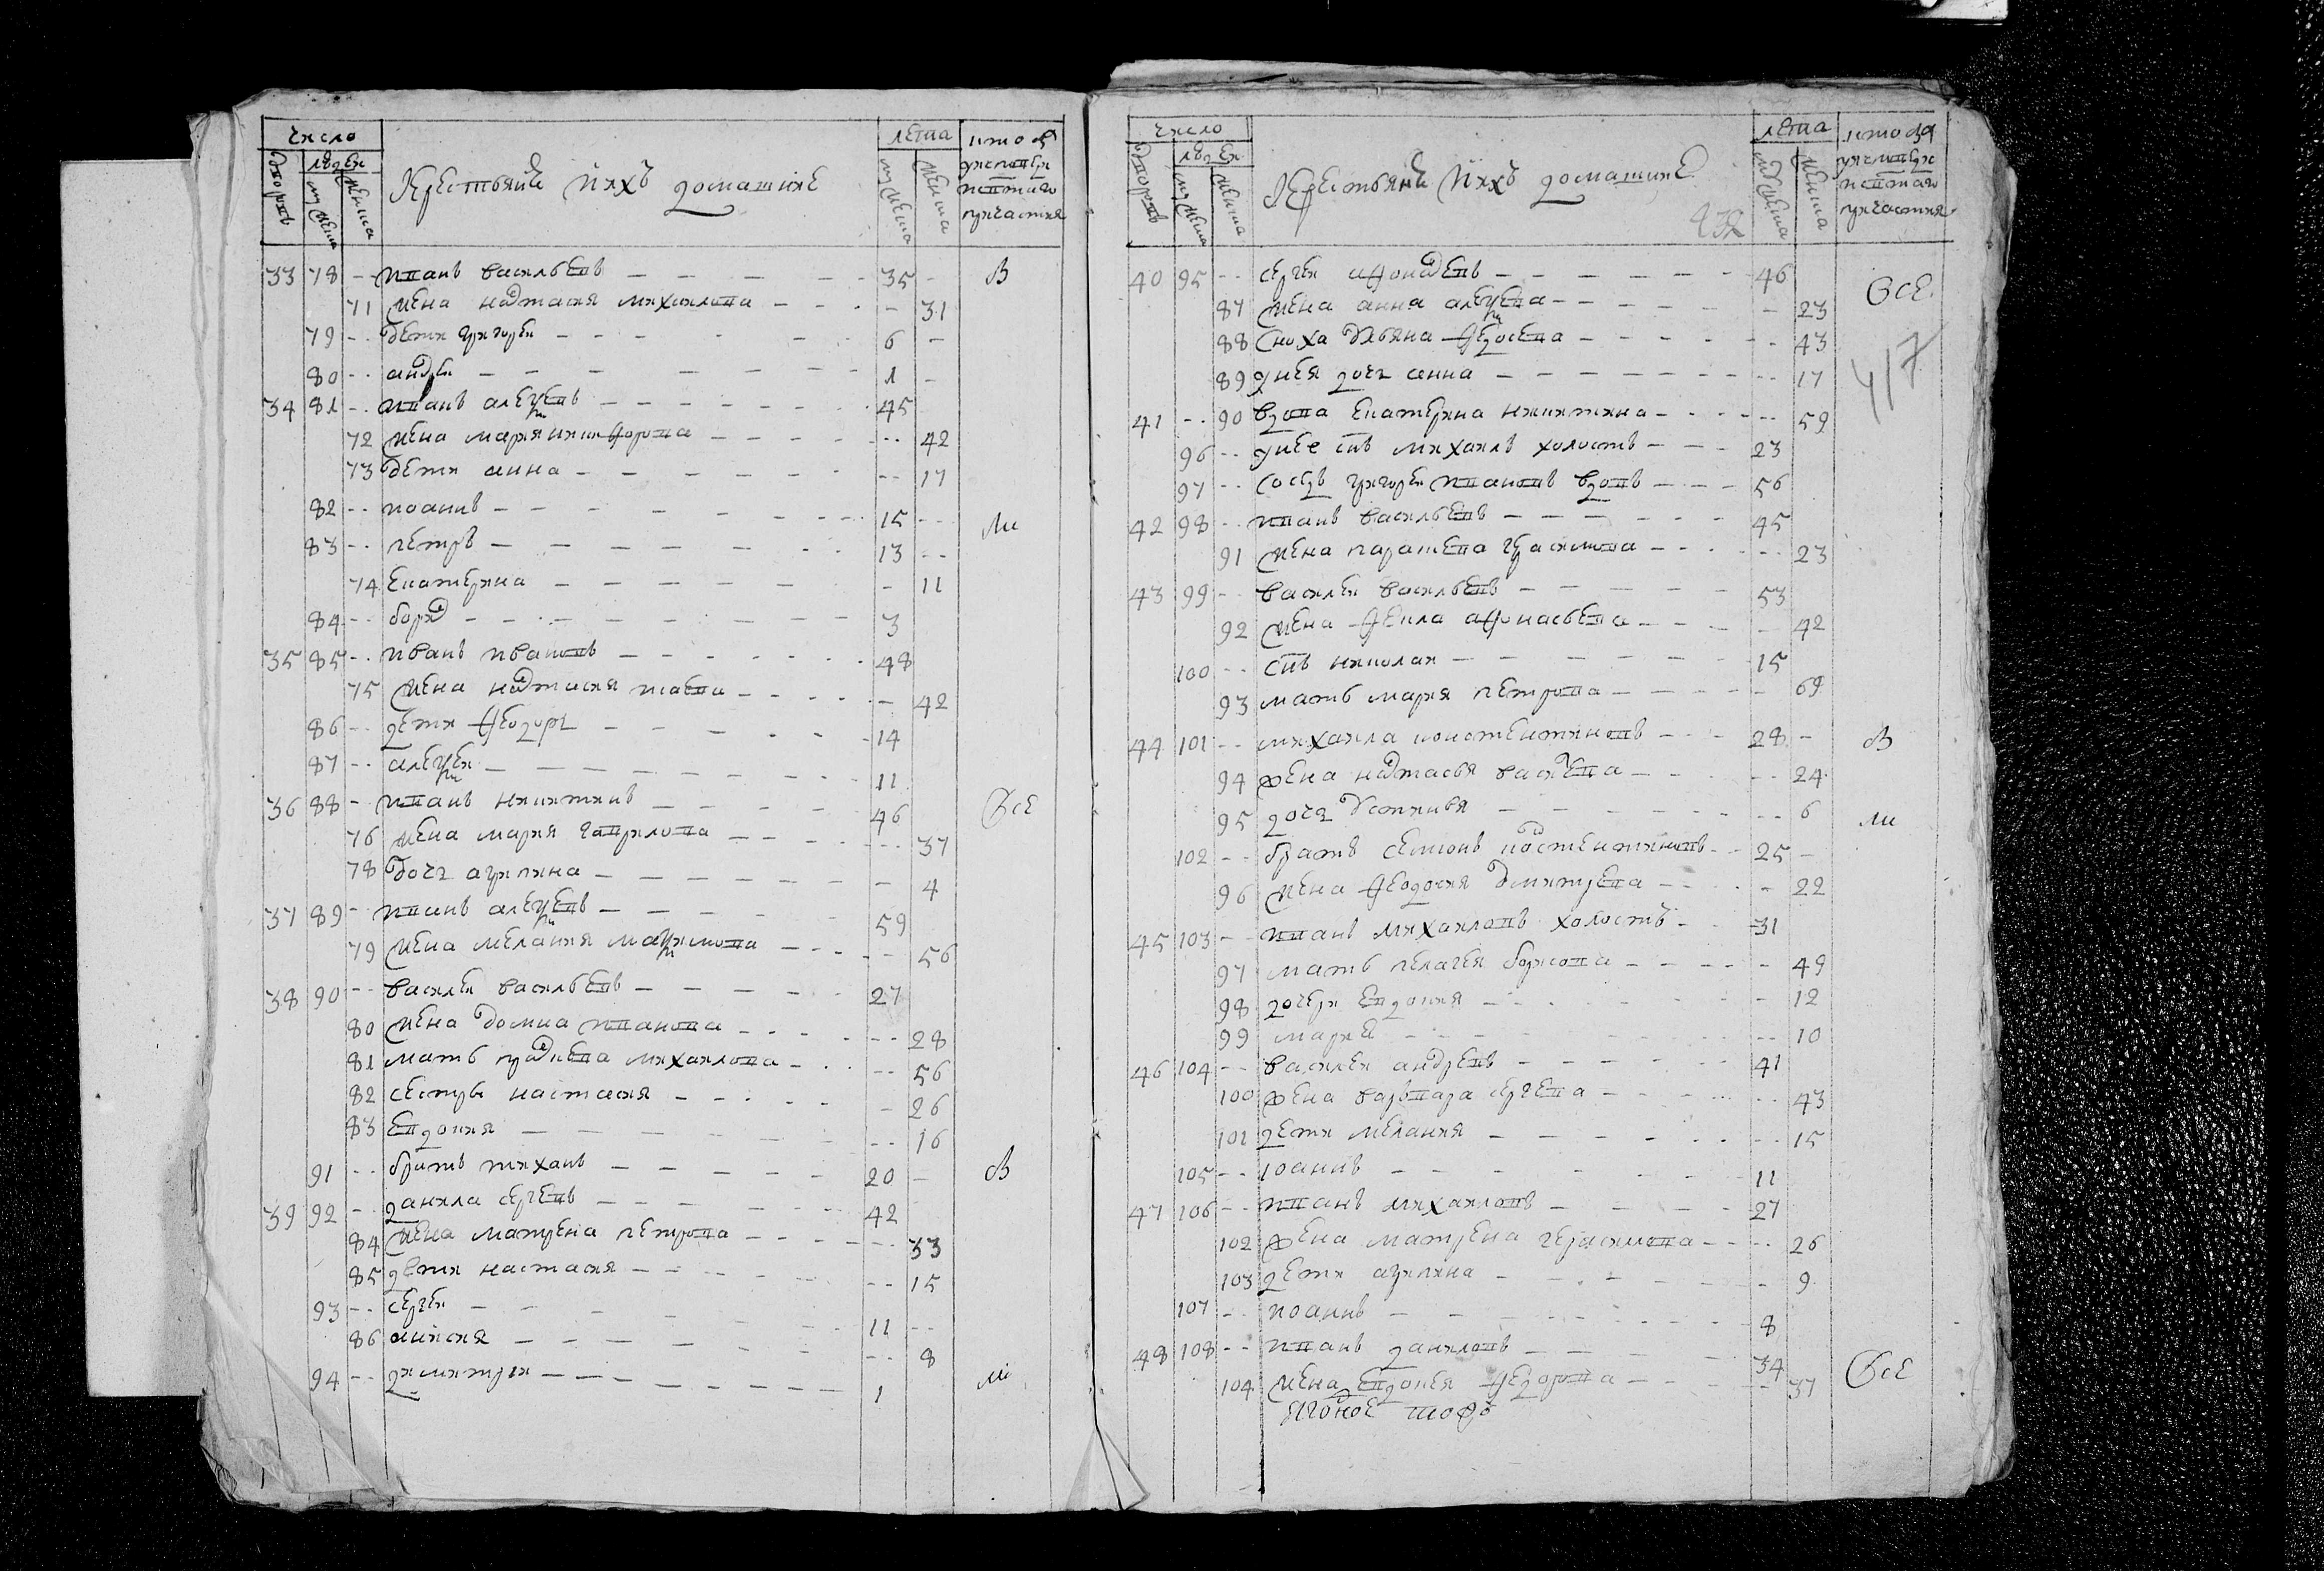 число
людеи
дворовъ
мужеска
женска
Крестьяня ихъ домашние
летна
мужеска
женска
33 78 -- иванъ васильевъ 35 - В
71 жена настасия михаилова - 31
79 -- дети григореи 6 -
80 -- андреи 1 -
34 81 -- иванъ алексеевъ 45
72 жена мария никифорова -- 42
73 дети анна -- 17
82 -- иоаннъ 15 -- ли
83 -- петръ 13 --
74 екатерина - 11
84 -- борис 3
35 85 -- иванъ ивановъ 48
75 жена настасия - 42
86 -- дети феодоръ 14
87 -- алексеи 11
36 88 - иванъ никитинъ 46 Все
76 жена мария гаврилова -- 37
78 дочь агрипина - 4
37 89 - иванъ алексеевъ 59
79 жена мелания максимова -- 56
38 90 -- василеи васильевъ 27
80 жена домна иванова -- 28
81 мать михаилова -- 56
82 сестры настасия - 26
83 евдокия -- 16
91 -- братъ тиханъ 20 - В
39 92 -- данила сергеевъ 42
84 жена матрена петрова -- 33
85 дети настасия -- 15
93 -- сергеи 11 --
86 анисия -- 8
94 -- димитреи 1 ли
число
людеи
дворовъ
мужеска
женска
Крестьяня ихъ домашние
432
летна
мужеска
женска
40 95 -- сергеи афонасевъ 46 Все
87 жена анна алексеева - 23
88 сноха ульяна федосеева -- 43
89 унея дочь анна -- 17
417
41 -- 90 вдова екатерина никитина -- 59
96 -- унее снъ михаилъ холостъ 23
97 -- соседъ григореи ивановъ вдовъ 56
42 98 - иванъ васильевъ 45
91 жена парасковья герасимова -- 23
43 99 - василеи васильевъ 53
92 жена фекла афонасьева - 42
100 -- снъ николаи 15
93 мать мария петрова - 69
44 101 -- михаила константиновъ 28 - В
94 жена настасья васильева -- 24
95 дочь устинья -- 6 ли
102 -- братъ семионъ константиновъ 25 -
96 жена феодосия дмитреева - 22
45 103 - иванъ михаиловъ холостъ 31
97 мать пелагея борисова - 49
98 дочери евдокия - 12
99 мария -- 10
46 104 -- василеи андреевъ 41
100 жена варвара сергеева -- 43
101 дети мелания -- 15
105 -- иоаннъ 11
47 106 -- иванъ михаиловъ 27
102 жена матрена герасимова -- 26
103 дети агрипина - 9
107 -- иоаннъ 8
48 108 -- иванъ даниловъ 34
104 жена евдокея федорова -- 37 Все